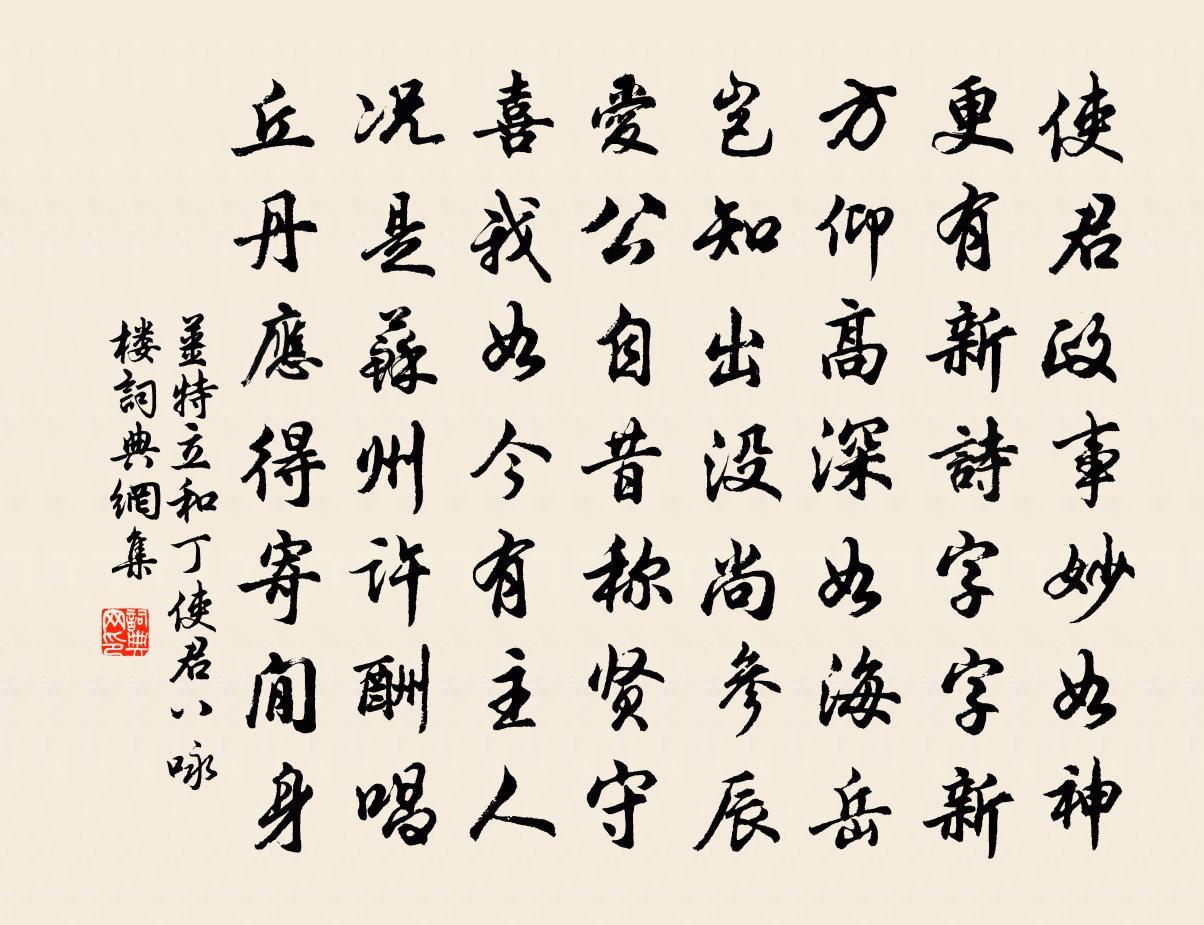 使君政事妙如神
更有新詩字字新
方仰高深如海岳
岂知出没尚參辰
愛公自昔称贤守
喜我如今有主人
况是蘇州许酬唱
丘丹應得寄閒身
姜特立和丁使君八咏
楼詞典網集
詞典
网印